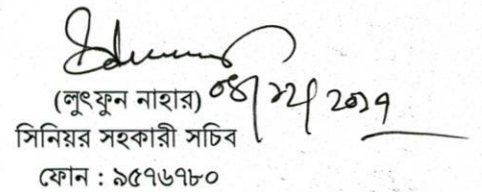 (লুৎফুন নাহার) ০৪/১২/২০১৭
সিনিয়র সহকারী সচিব
ফোন : ৯৫৭৬৭৮০